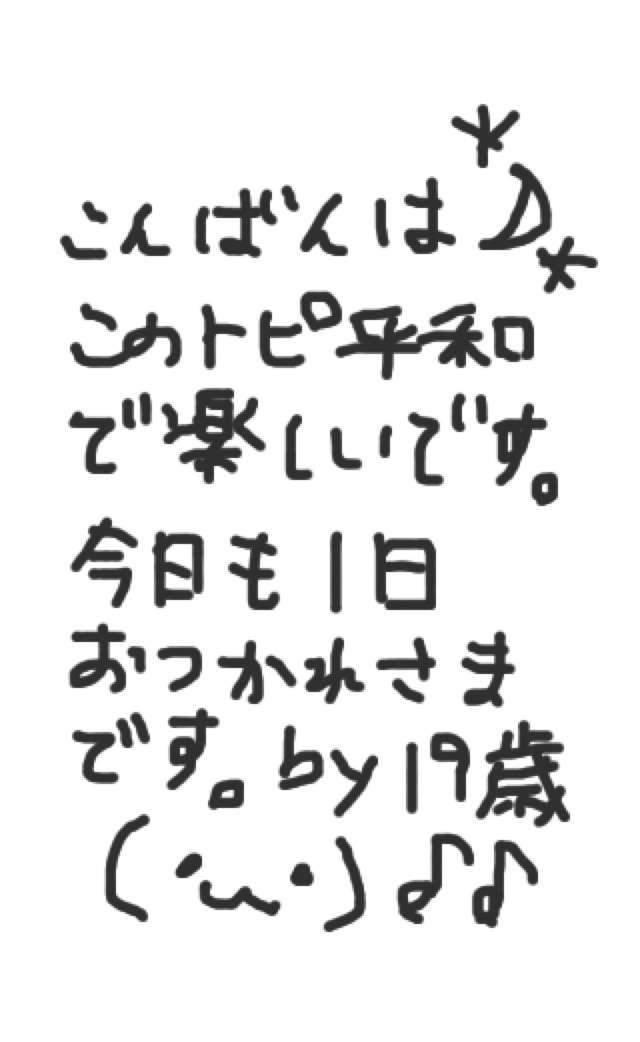 こんばんは
このトピ平和
で楽しいです。
今日も1日
おつかれさま
です。by 19歳
(・ω・)♪♪